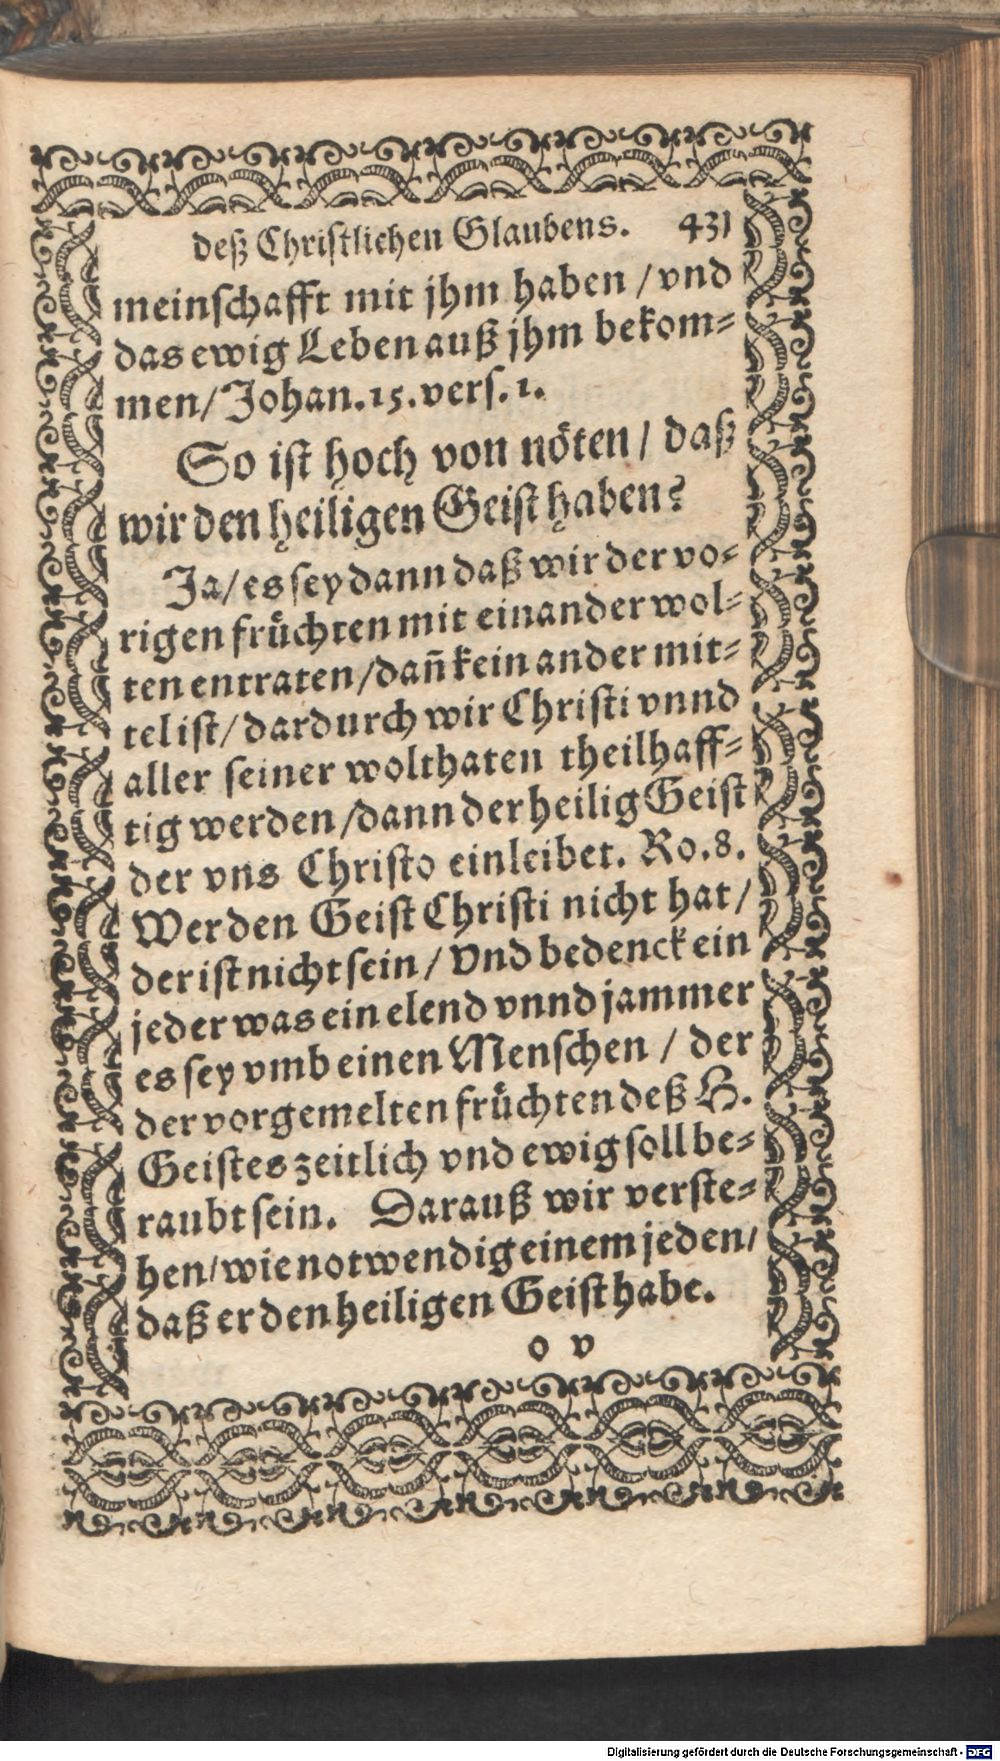 deß Christlichen Glaubens. 431
meinschafft mit jhm haben / vnd
das ewig Leben auß jhm bekom-
men / Johan. 15. vers. 1.
So ist hoch von nöten / daß
wir den heiligen Geist haben?
Ja / es sey dann daß wir der vo-
rigen früchten mit einander wol-
ten entraten / dañ kein ander mit-
tel ist / dardurch wir Christi vnnd
aller seiner wolthaten theilhaff-
tig werden / dann der heilig Geist
der vns Christo einleibet. Ro. 8.
Wer den Geist Christi nicht hat /
der ist nicht sein / Vnd bedenck ein
jeder was ein elend vnnd jammer
es sey vmb einen Menschen / der
der vorgemelten früchten deß H.
Geistes zeitlich vnd ewig soll be-
raubt sein. Darauß wir verste-
hen / wie notwendig einem jeden /
daß er den heiligen Geist habe.
o v
Digitalisierung gefördert durch die Deutsche Forschungsgemeinschaft - DFG